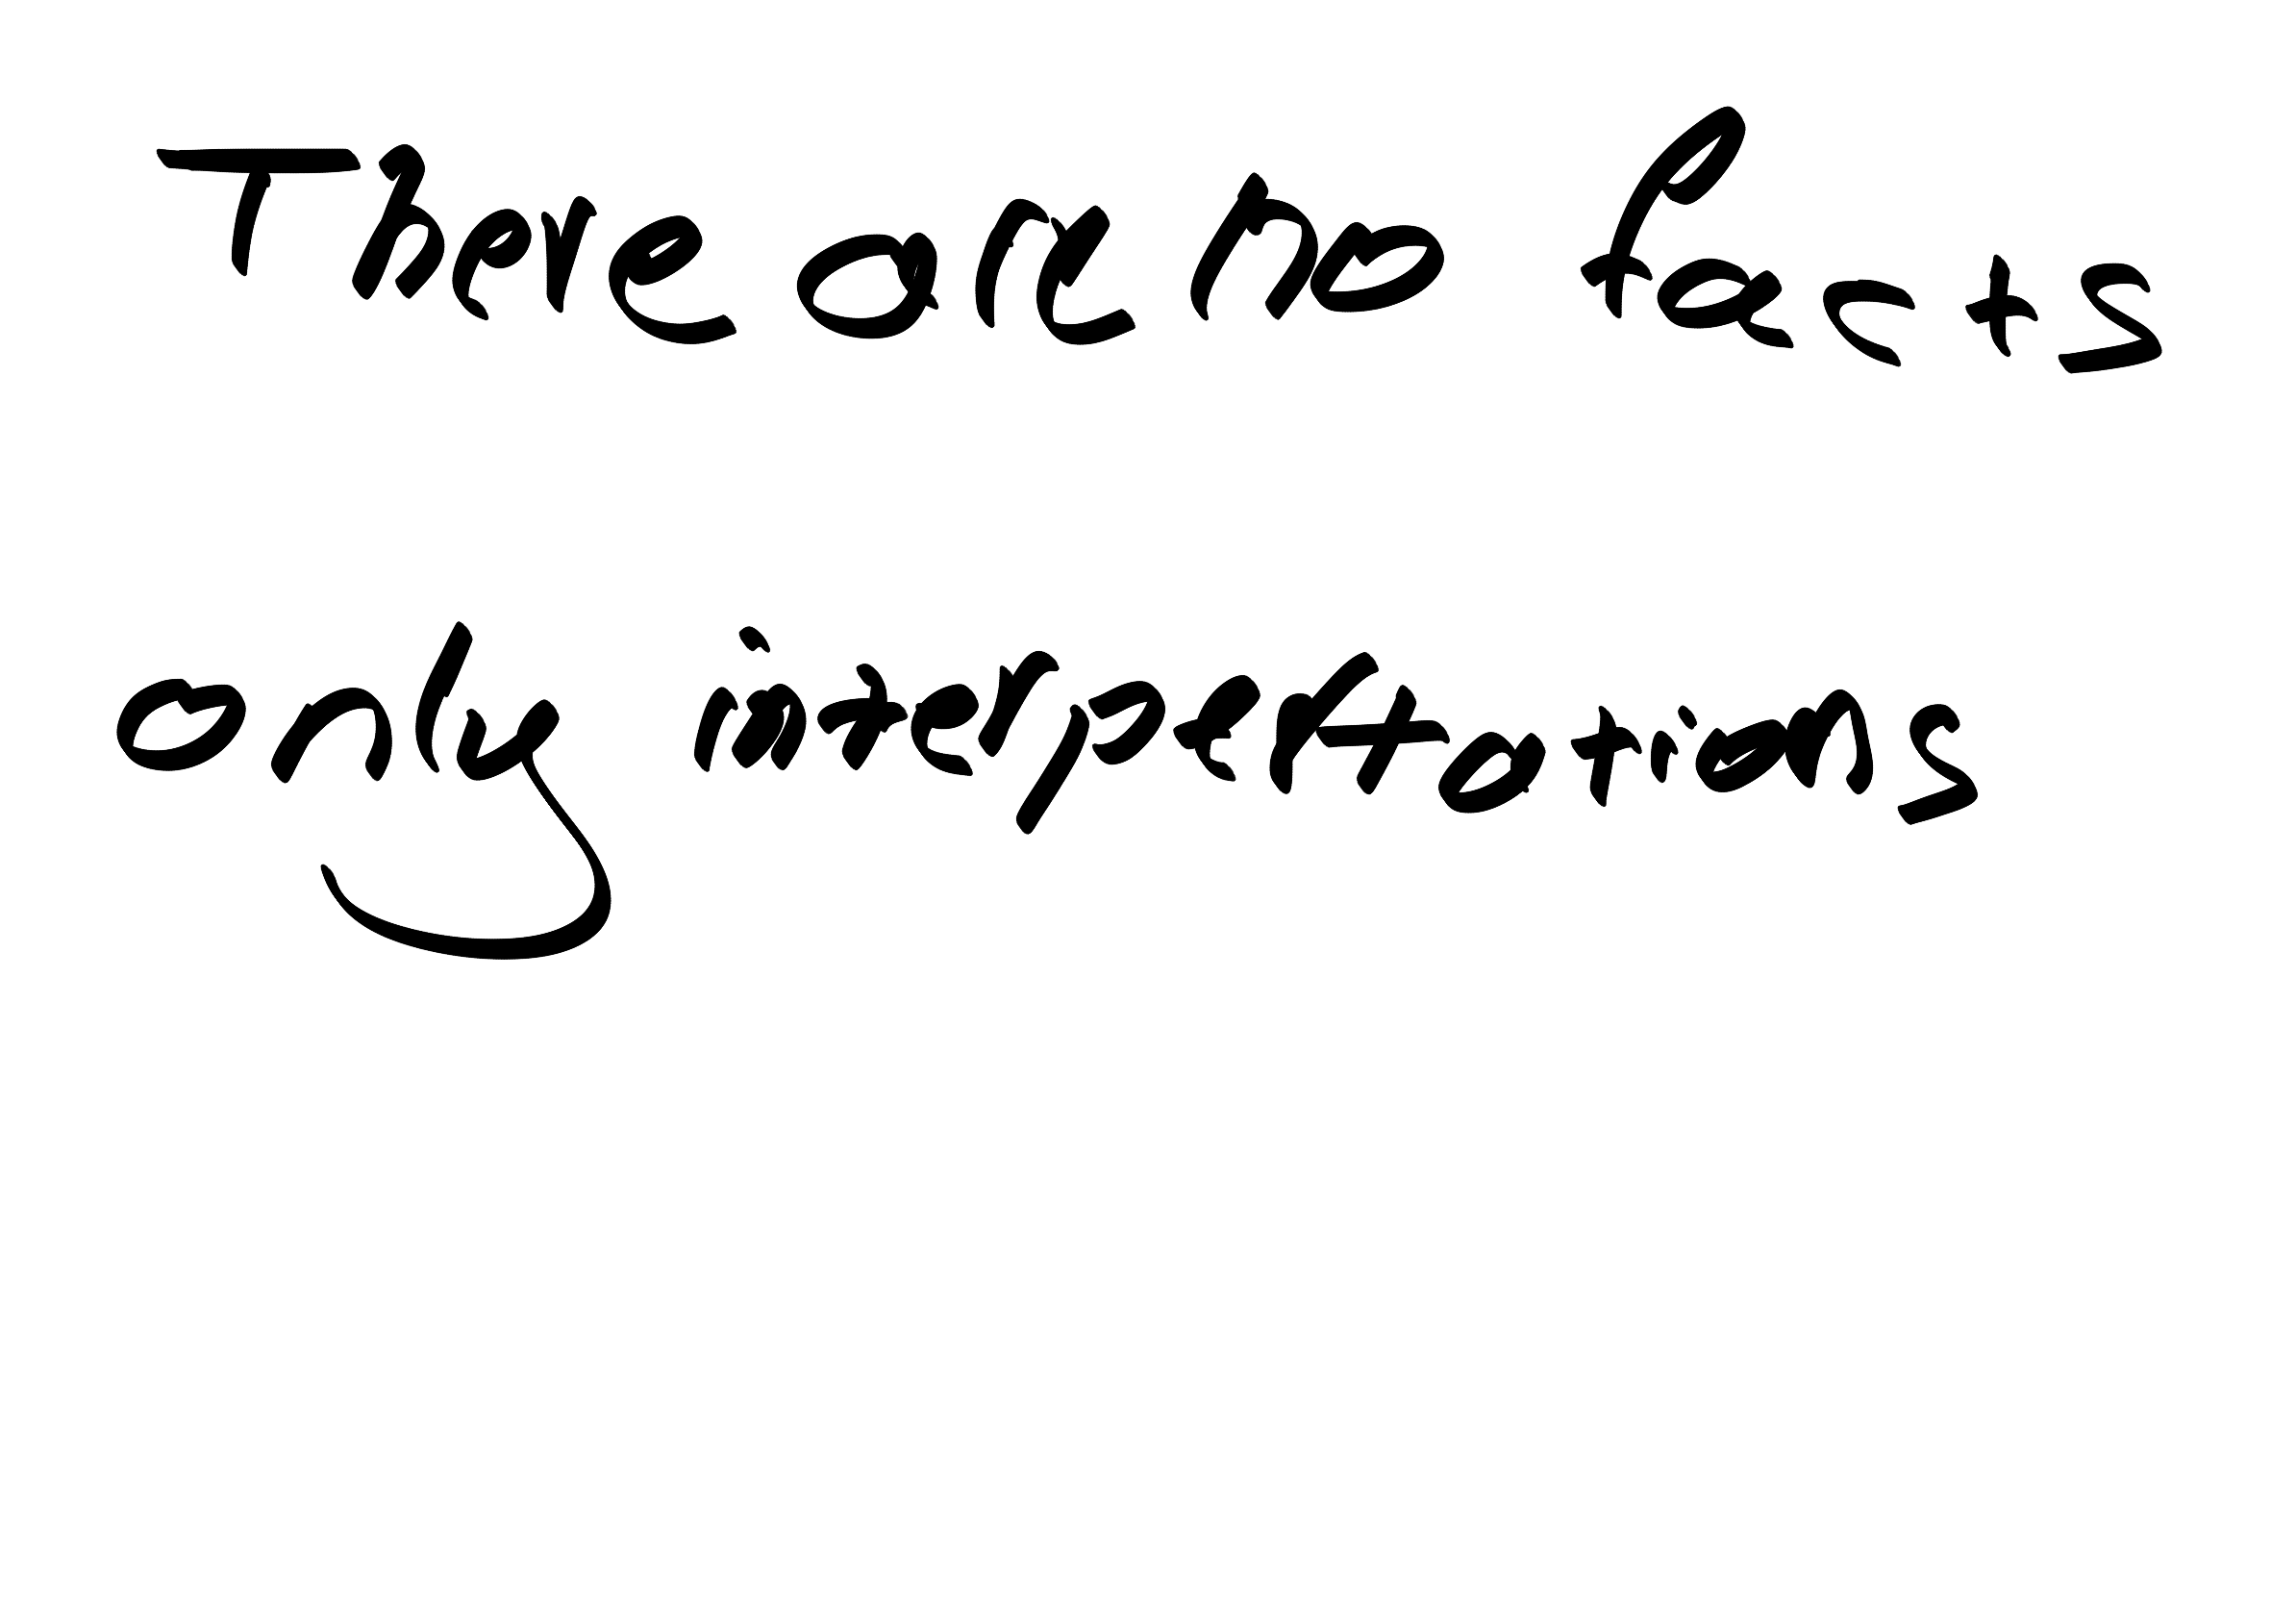 There are no facts
only interpertations